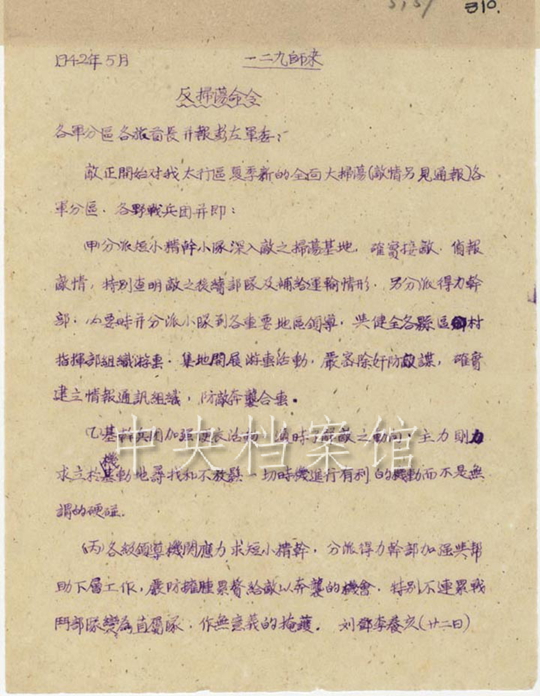 310.
1942年5月 一二九師來
反掃蕩命令
各軍分區各旅首長并報彭左軍委：
敵正開始对我太行區夏季新的全面大掃蕩(敵情另見通報)各
軍分區、各野戰兵团并即：
(甲)分派短小精幹小隊深入敵之掃蕩基地，確實接敵、偵報
敵情，特別查明敵之後續部隊及補給運輸情形。另分派得力幹
部，必要時并分派小隊到各重要地區領導，與健全各縣區鄉村
指揮部組織游击，集地開展游击活動，嚴密除奸防敵諜，確實
建立情報通訊組織，防敵奔襲合击。
(乙)基 加强 活 時 敵之動向，主力則力
求立於機動地尋找和不放鬆一切時機進行有利的機動而不是無
謂的硬碰。
(丙)各級領導機関應力求短小精幹，分派得力幹部加强與幫
助下層工作，嚴防擁腫累贅給敵以奔襲的機會，特別不連累戰
鬥部隊變為直屬隊，作無意義的掩護。 刘鄧李蔡 (廿二日)
中央档案馆